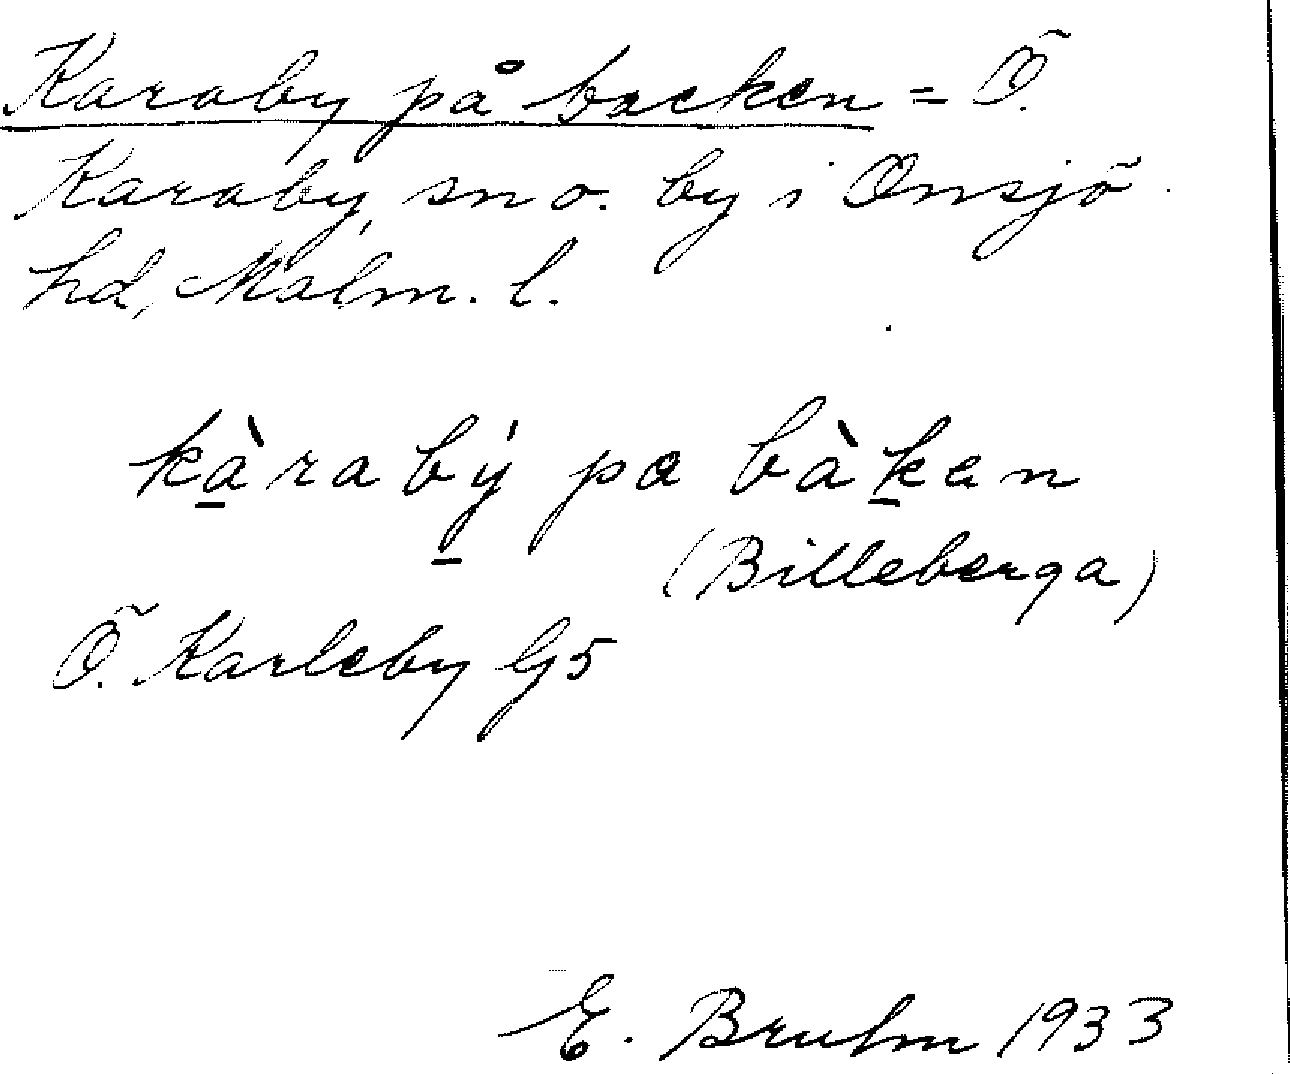 Karaby på backen = Ö.
Karaby, sn o. by i Onsjö
hd, Malm. l.
kàrabý pa bàkan
(Billeberga)
Ö. Karleby G5
E. Bruhn 1933